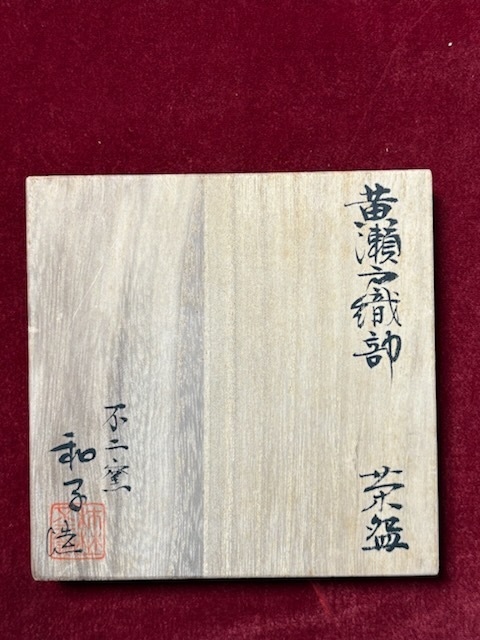 黄瀬戸織部
茶盌
不二窯
和子造